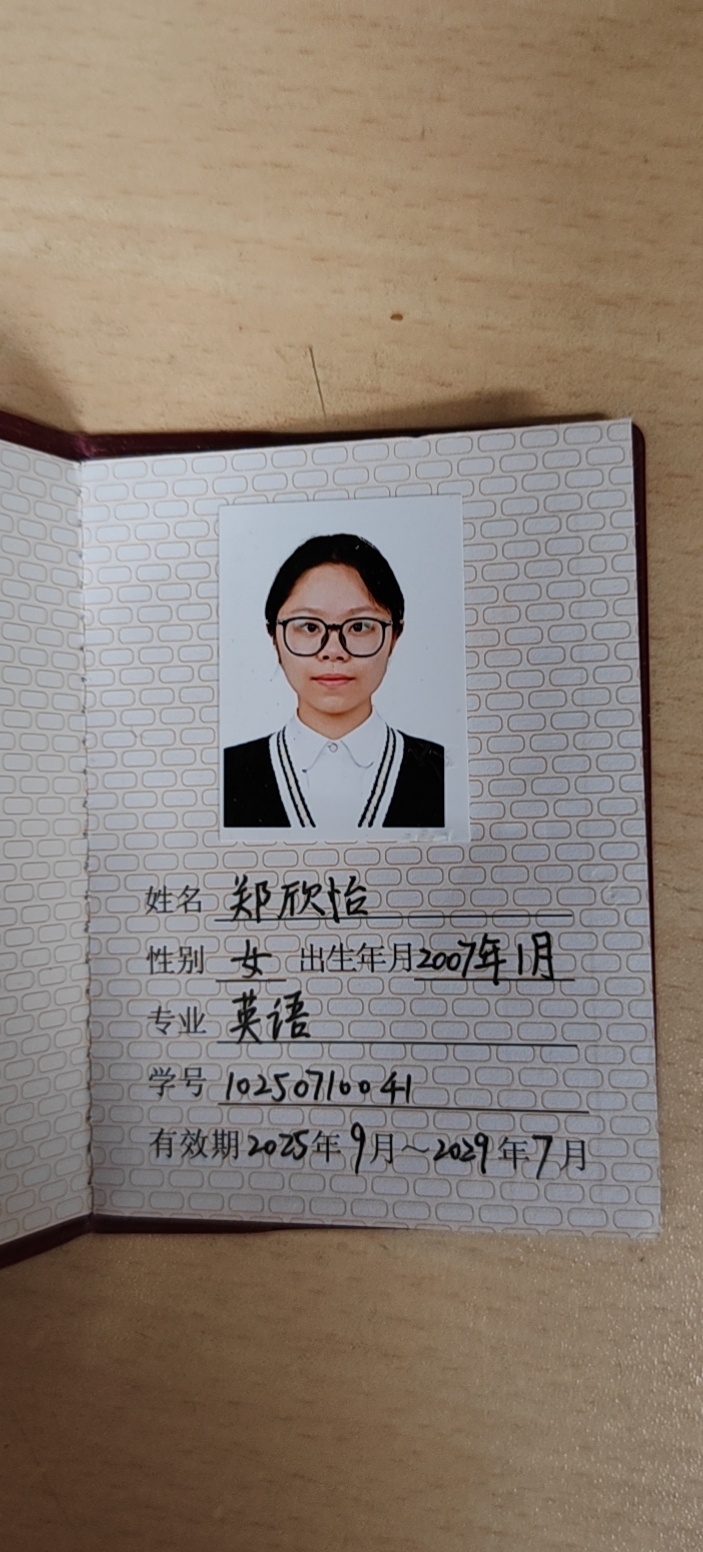 姓名 郑欣怡
性别 女 出生年月 2007年1月
专业 英语
学号 10250710041
有效期 2025年9月～2029年7月